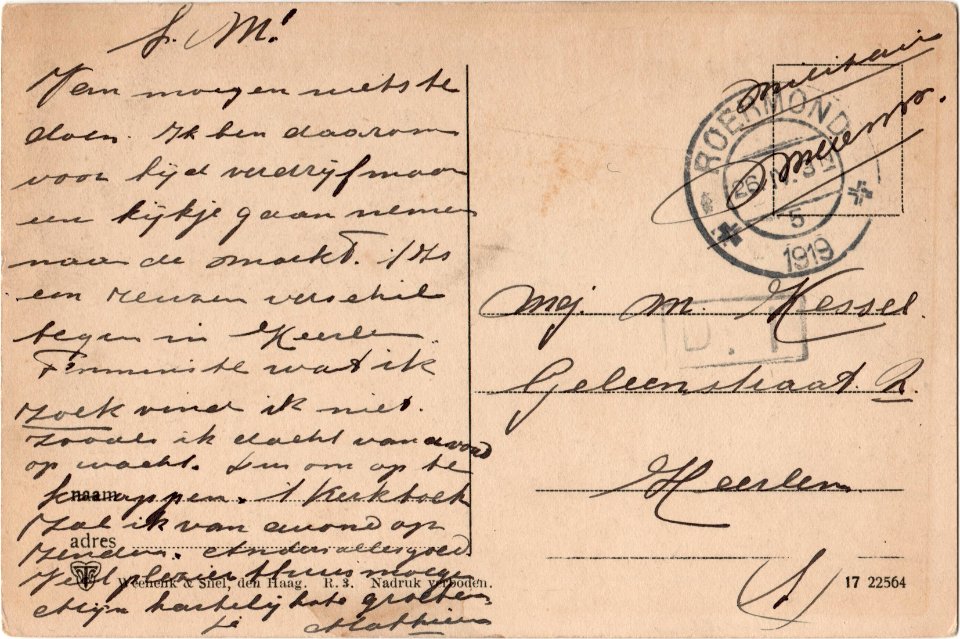 L. M!
Van morgen niets te
doen. Ik ben daarom
voor tijd verdrijf maar
een kijkje gaan nemen
naar de markt. 't Is
een reuzen verschil
tegen in Heerlen.
Tenminste wat ik
zoek vind ik niet.
Zooals ik dacht van avond
op wacht. Dus om op te
knappen. 't Kerkboek
zal ik van avond op
zenden. Anders alles goed
Veel plezier morgen
Mijn hartelijkste groeten
Mathieu
naam
adres
Weenenk & Snel, den Haag. R. 3. Nadruk verboden.
militair
ROERMOND
5
1919
D. 1
Mej. M. Kessel.
Geleenstraat 2
Heerlen
17 22564